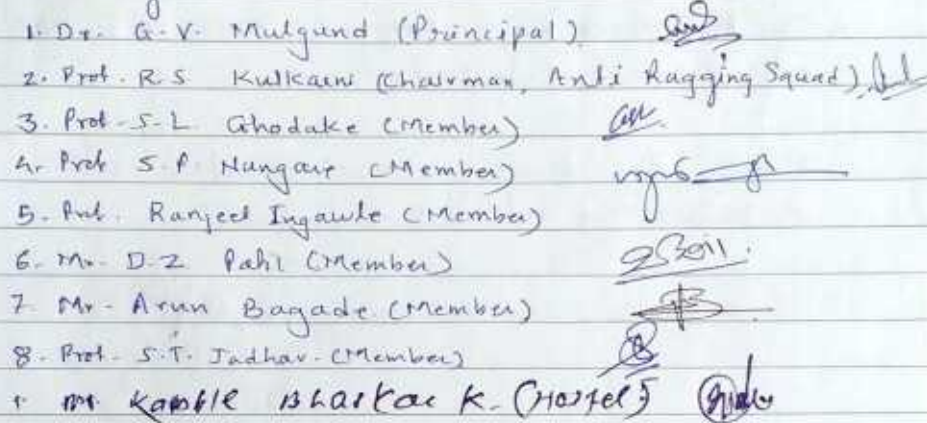 1. Dr. G.V. Mulgund (Principal)
2. Prof. R.S Kulkarni (Chairman, Anti Ragging Squad)
3. Prof. S.L. Ghodake (Member)
4. Prof S.P. Nangare (Member)
5. Prof. Ranjeet Ingawle (Member)
6. Mr. D.Z. Patil (Member)
7. Mr. Arun Bagade (Member)
8. Prof. S.T. Jadhav. (Member)
Mr. Kamble Bhaskar K. (Hostel)